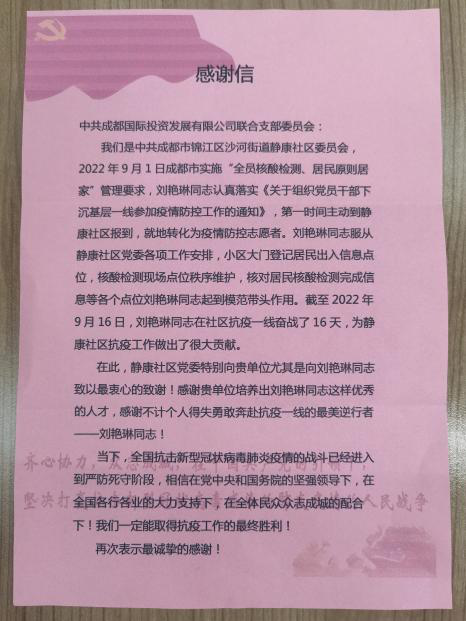 感谢信
中共成都国际投资发展有限公司联合支部委员会：
我们是中共成都市锦江区沙河街道静康社区委员会，
2022年9月1日成都市实施“全员核酸检测、居民原则居
家”管理要求，刘艳琳同志认真落实《关于组织党员干部下
沉基层一线参加疫情防控工作的通知》，第一时间主动到静
康社区报到，就地转化为疫情防控志愿者。刘艳琳同志服从
静康社区党委各项工作安排，小区大门登记居民出入信息点
位，核酸检测现场点位秩序维护，核对居民核酸检测完成信
息等各个点位刘艳琳同志起到模范带头作用。截至2022年
9月16日，刘艳琳同志在社区抗疫一线奋战了16天，为静
康社区抗疫工作做出了很大贡献。
在此，静康社区党委特别向贵单位尤其是向刘艳琳同志
致以最衷心的致谢！感谢贵单位培养出刘艳琳同志这样优秀
的人才，感谢不计个人得失勇敢奔赴抗疫一线的最美逆行者
——刘艳琳同志！
当下，全国抗击新型冠状病毒肺炎疫情的战斗已经进入
到严防死守阶段，相信在党中央和国务院的坚强领导下，在
全国各行各业的大力支持下，在全体民众众志成城的配合
下！我们一定能取得抗疫工作的最终胜利！
再次表示最诚挚的感谢！
齐心协力，众志成城，在中国共产党的引领下，
坚决打 人民战争